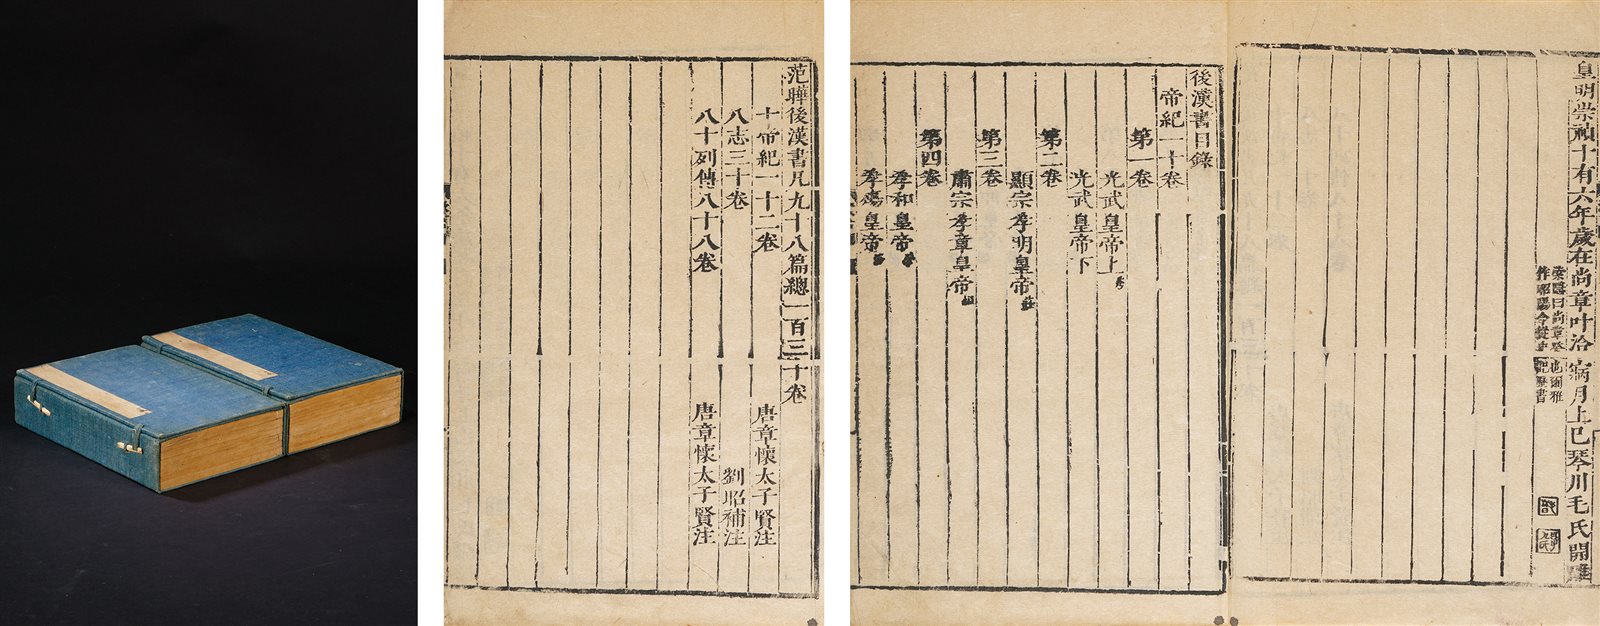 范曄後漢書凡九十八篇總一百三十卷
十帝紀一十二卷 唐章懷太子賢注
八志三十卷 劉昭補注
八十列傳八十八卷 唐章懷太子賢注
皇明崇禎十有六年歲在尚章叶洽寎月上巳琴川毛氏開雕
索隱曰尚章癸也爾雅
作昭陽今史記書
後漢書目錄
帝紀一十卷
第一卷
光武皇帝上秀
光武皇帝下
第二卷
顯宗孝明皇帝莊
第三卷
肅宗孝章皇帝
第四卷
孝和皇帝
孝殤皇帝